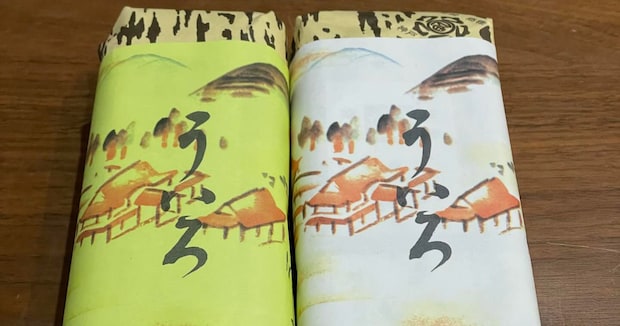 ういろ
ういろ